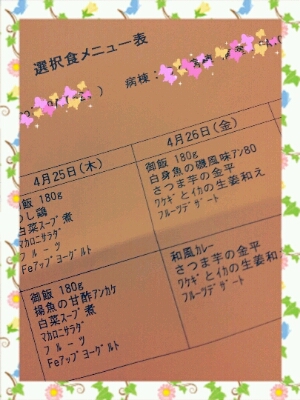 選択食メニュー表
) 病棟
4月25日(木)
御飯 180g
し鶏
白菜スープ煮
マカロニサラダ
フルーツ
Feアップヨーグルト
4月26日(金)
御飯 180g
白身魚の磯風味アン80
さつま芋の金平
ワケギとイカの生姜和え
フルーツデザート
御飯 180g
揚魚の甘酢アンカケ
白菜スープ煮
マカロニサラダ
フルーツ
Feアップヨーグルト
和風カレー
さつま芋の金平
ワケギとイカの生姜和
フルーツデザート